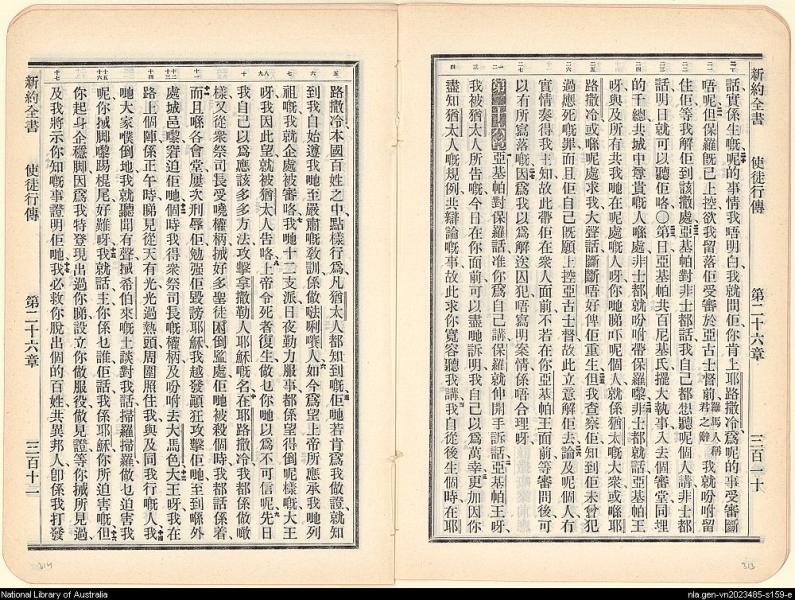 新約全書 使徒行傳 第二十六章 三百一十
話實係生嘅呢的事情我唔明白我就問佢你肯上耶路撒冷爲呢的事受審斷
唔呢但保羅既已上控欲我留落佢受審於亞古士督前羅馬人稱君之辭我就吩咐留
住佢等我解佢到該撒處亞基帕對非士都話我自己都想聽呢個人講非士都
話明日就可以聽佢咯○第日亞基帕共百尼基氏擺大執事入去個審堂同埋
的千總共城中尊貴嘅人喺處非士都就吩咐帶保羅嚟非士都就話亞基帕王
呀與及所有共我哋在呢處嘅人呀你哋睇吓呢個人就係猶太嘅大衆或喺耶
路撒冷或喺呢處求我大聲話斷斷唔好俾佢重生但我查察佢知到佢未曾犯
過應死嘅罪而且佢自己既願上控亞古士督故此立意解佢去論及呢個人有
實情奏得我主知故此帶佢在衆人面前不若在你亞基帕王面前等審問後可
以有所寫落嘅因爲我以爲解送囚犯唔寫明案情係唔合理呀
第二十六章亞基帕對保羅話准你爲自己講保羅就伸開手訴話亞基帕王呀
我被猶太人所告嘅今日在你面前可以盡哋訴明我自己以爲萬幸更加因你
盡知猶太人嘅規例共辯論嘅事故此求你寬容聽我講我自從後生個時在耶
路撒冷本國百姓之中點樣行爲凡猶太人都知到嘅佢哋若肯爲我做證就知
到我自始遵我哋至嚴肅嘅敎訓係做㗎唎嚷人如今爲望上帝所應承我哋列
祖嘅我就企處被審咯我哋十二支派日夜勤力服事都係望得倒呢樣嘅大王
呀我因此望就被猶太人告咯上帝令死者復生做乜你哋以爲不可信呢先日
我自己以爲應該多多方法攻擊拿撒勒人耶穌嘅名在耶路撒冷我都係做嗽
樣又從衆祭司長受曉權柄搣好多聖徒困倒監處佢哋被殺個時我都話係着
而且喺各會堂屢次刑辱佢勉強佢毀謗耶穌我越發顚狂攻擊佢哋至到喺外
處城邑嚟窘迫佢哋個時我得衆祭司長嘅權柄及吩咐去大馬色大王呀我在
路上個陣係正午時睇見從天有光光過熱頭周圍照住我與及同我行嘅人我
哋大家噗倒地我就聽聞有聲搣希伯來嘅土談對我話掃羅掃羅做乜迫害我
呢你搣脚嚟踢棍尾好難呀我就話主你係乜誰佢話我係耶穌你所迫害嘅但
你起身企穩脚因爲我特登現出過你睇設立你做服役做見證等你搣所見過
及我將示你知嘅事證明佢哋我必救你脫出個的百姓共異邦人卽係我打發
新約全書 使徒行傳 第二十六章 三百十一
National Library of Australia
nla.gen-vn2023485-s159-e